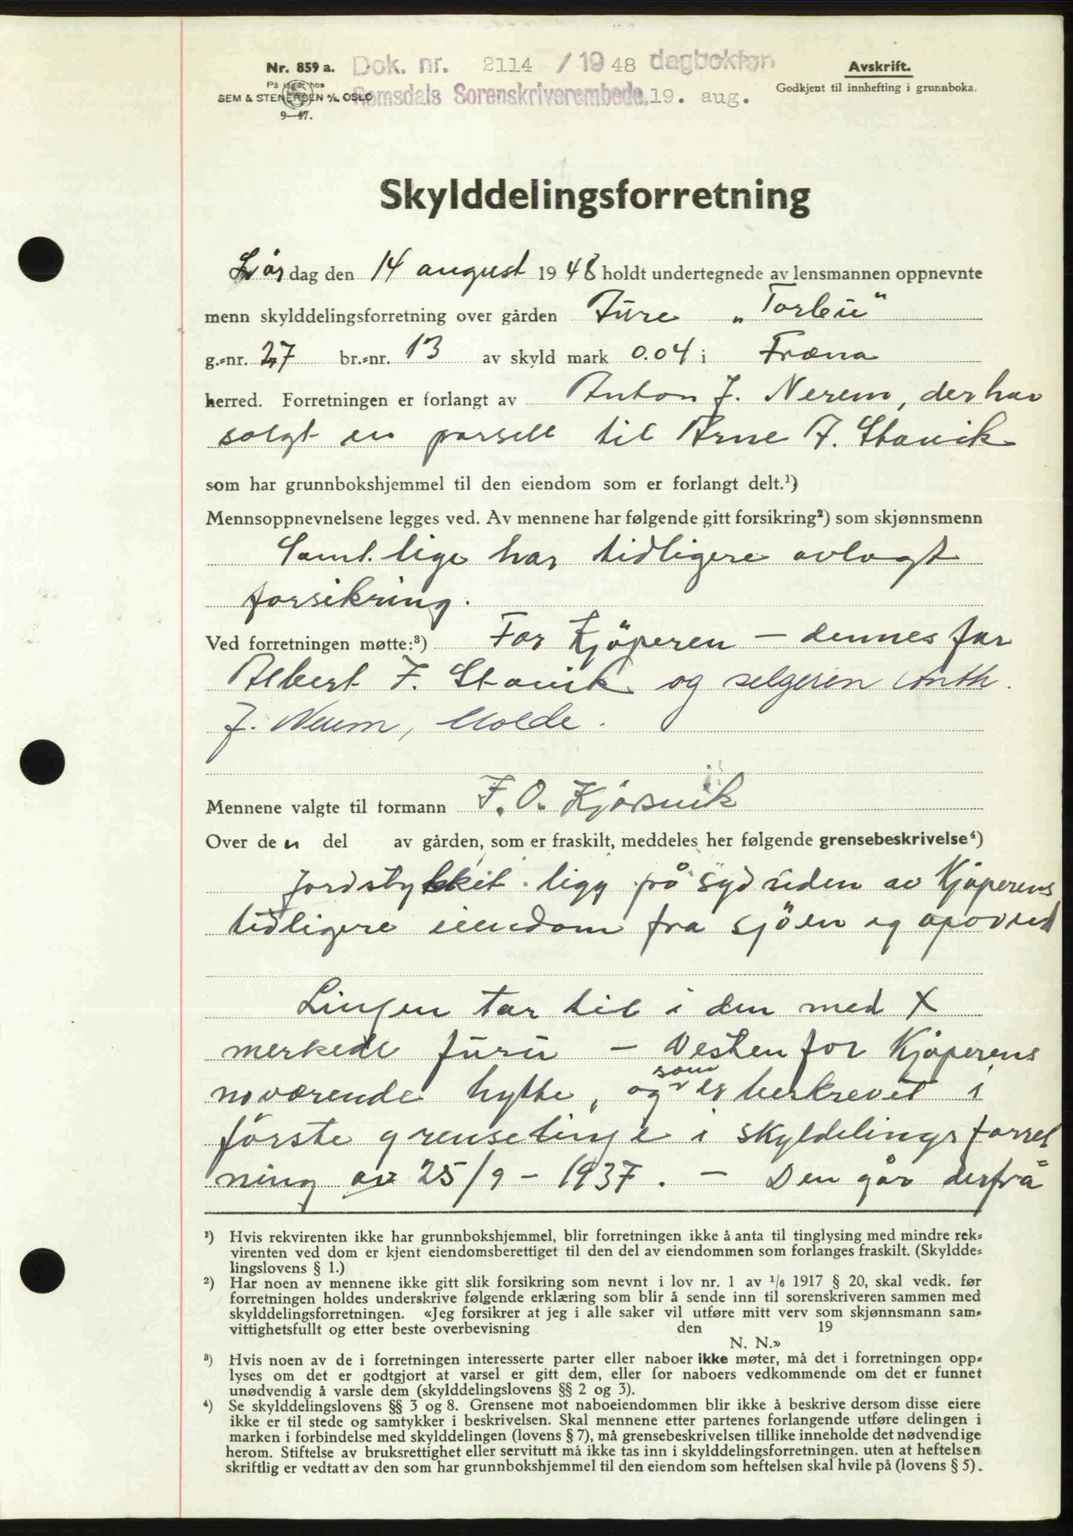 Nr. 859 a.
På lager hos
SEM & STENERSEN A/S. OSLO
9—47.
Dok. nr. 2114 /19 48 dagbokført
Romsdals Sorenskriverembede, 19. aug.
Avskrift.
Godkjent til innhefting i grunnboka.
Skylddelingsforretning
Lørdag den 14 august 1948 holdt undertegnede av lensmannen oppnevnte
menn skylddelingsforretning over gården Jure „Torleiu"
g.-nr. 27 br.-nr. 13 av skyld mark 0.04 i Fræna
herred. Forretningen er forlangt av Anton J. Nerem, der har
solgt en parsell til Arne A. Stavik
som har grunnbokshjemmel til den eiendom som er forlangt delt.¹)
Mennsoppnevnelsene legges ved. Av mennene har følgende gitt forsikring²) som skjønnsmenn
Samtlige har tidligere avlagt
forsikring.
Ved forretningen møtte:³) For Kjöperen — dennes far
Albert F. Stavik og selgeren Anth.
J. Nerem, Molde.
Mennene valgte til formann F. O. Kjørsvik
Over den del av gården, som er fraskilt, meddeles her følgende grensebeskrivelse⁴)
Jordstykket ligg på sydsiden av Kjöperens
tidligere eiendom fra sjöen og opover
Linjen tar til i den med X
merkede furu — Vesten for Kjöperens
noværende hytte, og som er beskrevet i
förste grenselinje i skyldelingsforret
ning av 25/9 - 1937. — Den går derfrå
¹) Hvis rekvirenten ikke har grunnbokshjemmel, blir forretningen ikke å anta til tinglysing med mindre rek-
virenten ved dom er kjent eiendomsberettiget til den del av eiendommen som forlanges fraskilt. (Skyldde-
lingslovens § 1.)
²) Har noen av mennene ikke gitt slik forsikring som nevnt i lov nr. 1 av ¹/₆ 1917 § 20, skal vedk. før
forretningen holdes underskrive følgende erklæring som blir å sende inn til sorenskriveren sammen med
skylddelingsforretningen. «Jeg forsikrer at jeg i alle saker vil utføre mitt verv som skjønnsmann sam-
vittighetsfullt og etter beste overbevisning den 19
N. N.»
³) Hvis noen av de i forretningen interesserte parter eller naboer ikke møter, må det i forretningen opp-
lyses om det er godtgjort at varsel er gitt dem, eller for naboers vedkommende om det er funnet
unødvendig å varsle dem (skylddelingslovens §§ 2 og 3).
⁴) Se skylddelingslovens §§ 3 og 8. Grensene mot naboeiendommen blir ikke å beskrive dersom disse eiere
ikke er til stede og samtykker i beskrivelsen. Skal mennene etter partenes forlangende utføre delingen i
marken i forbindelse med skylddelingen (lovens § 7), må grensebeskrivelsen tillike inneholde det nødvendige
herom. Stiftelse av bruksrettighet eller servitutt må ikke tas inn i skylddelingsforretningen. uten at heftelsen
skriftlig er vedtatt av den som har grunnbokshjemmel til den eiendom som heftelsen skal hvile på (lovens § 5).